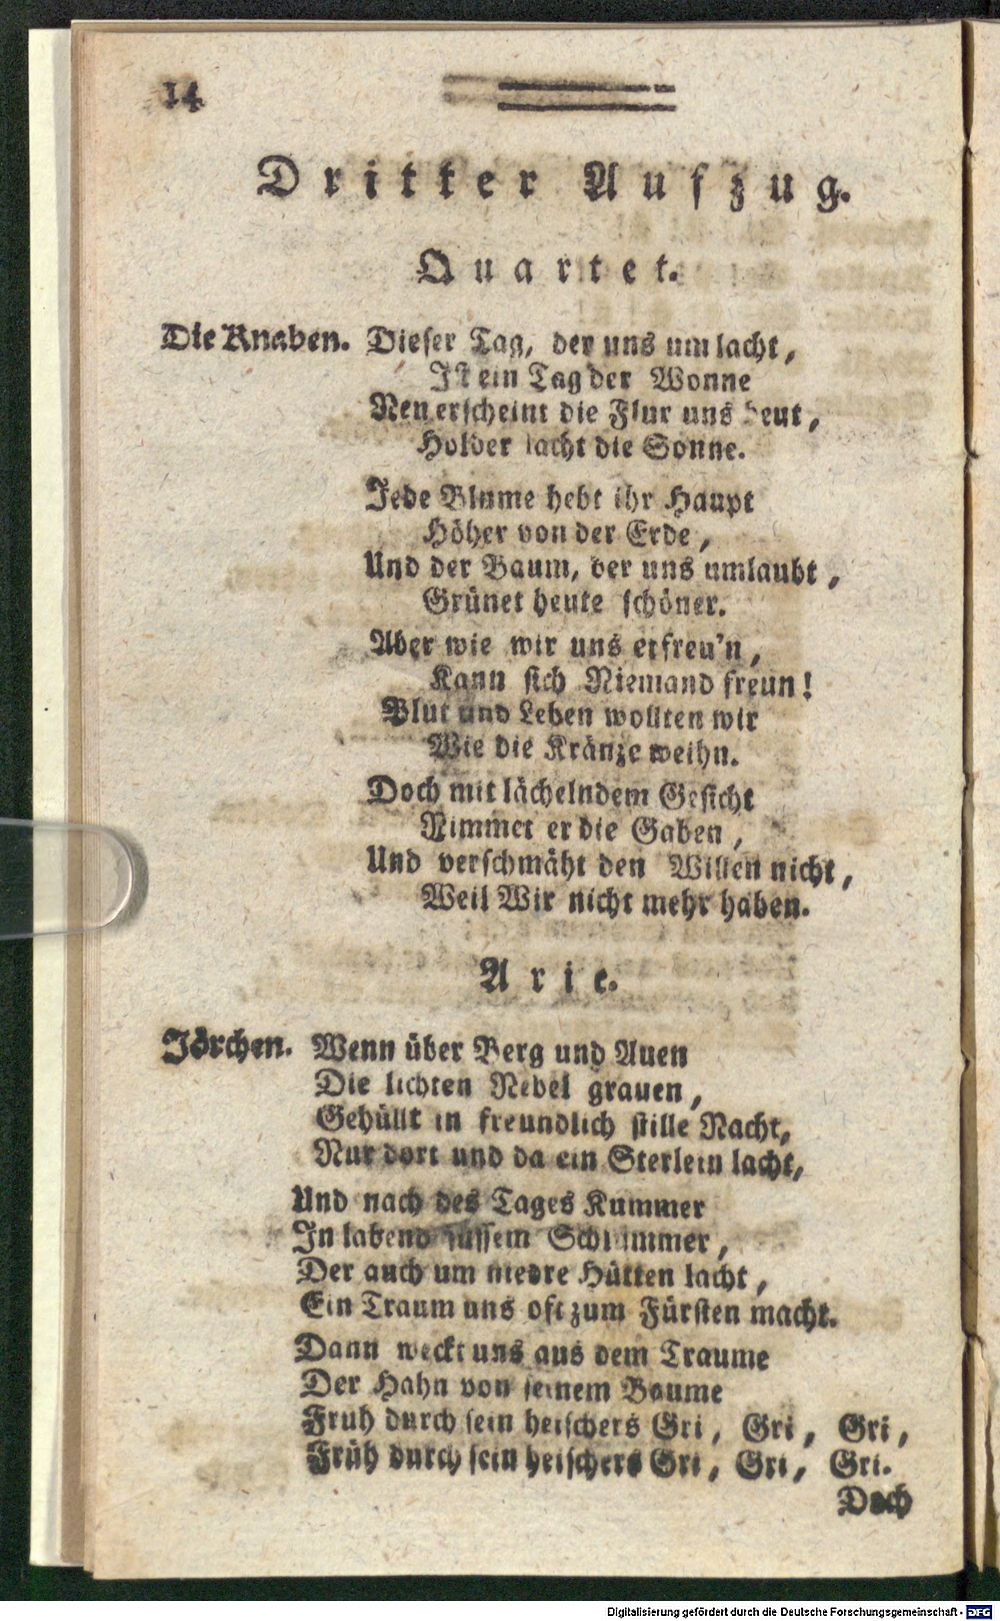 14
Dritter Aufzug.
Quartet.
Die Knaben. Dieser Tag, der uns um lacht,
Ist ein Tag der Wonne
Neu erscheint die Flur uns heut,
Holder lacht die Sonne.
Jede Blume hebt ihr Haupt
Höher von der Erde,
Und der Baum, der uns umlaubt,
Grünet heute schöner.
Aber wie wir uns erfreu'n,
Kann sich Niemand freun!
Blut und Leben wollten wir
Wie die Kränze weihn.
Doch mit lächelndem Gesicht
Nimmet er die Gaben,
Und verschmäht den Willen nicht,
Weil Wir nicht mehr haben.
Arie.
Jörchen. Wenn über Berg und Auen
Die lichten Nebel grauen,
Gehüllt in freundlich stille Nacht,
Nur dort und da ein Sterlein lacht,
Und nach des Tages Kummer
In labend süssem Schlummer,
Der auch um niedre Hütten lacht,
Ein Traum uns oft zum Fürsten macht.
Dann weckt uns aus dem Traume
Der Hahn von seinem Baume
Früh durch sein heischers Gri, Gri, Gri,
Früh durch sein heischers Gri, Gri, Gri.
Doch
Digitalisierung gefördert durch die Deutsche Forschungsgemeinschaft - DFG